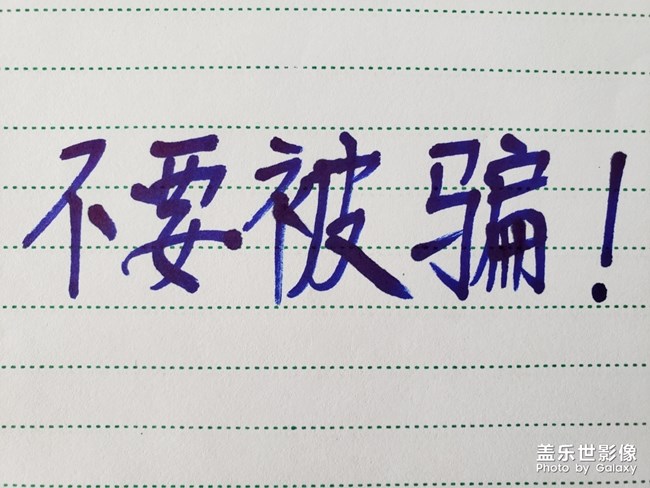 不要被骗!
盖乐世影像
Photo by Galaxy